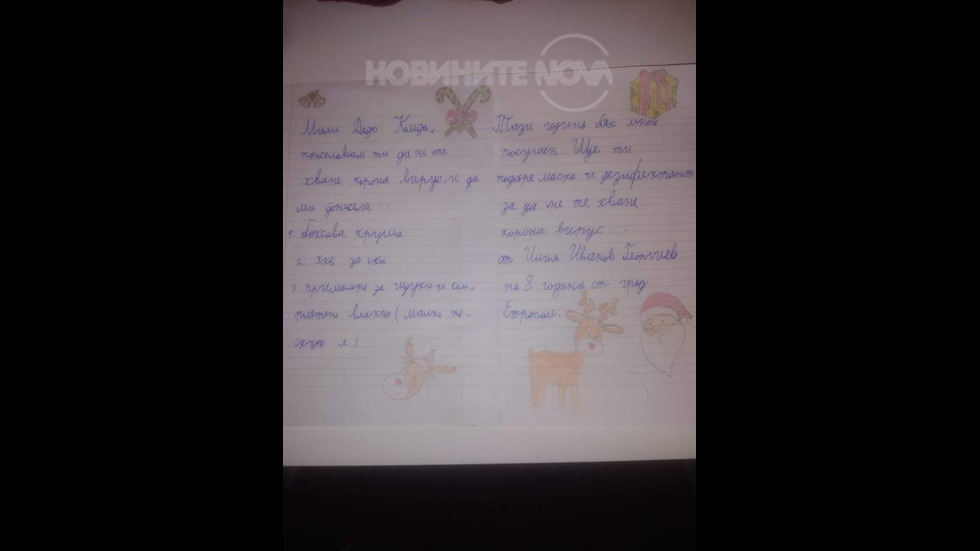 НОВИНИТЕ NOVA
Мили Дядо Коледа,
пожелавам ти да не те
хване корона вирус и да
ми донесеш:
1. боксова круша
2. яке за ски
3. примамка за щуки и сом,
плетено влакно (малко по-
скъпо е)
Тази година бях много
послушен. Ще ти
подаря маска и дезифектант
за да не те хване
корона вирус.
от Илия Иванов Георгиев
на 8 години от град
Етрополе.